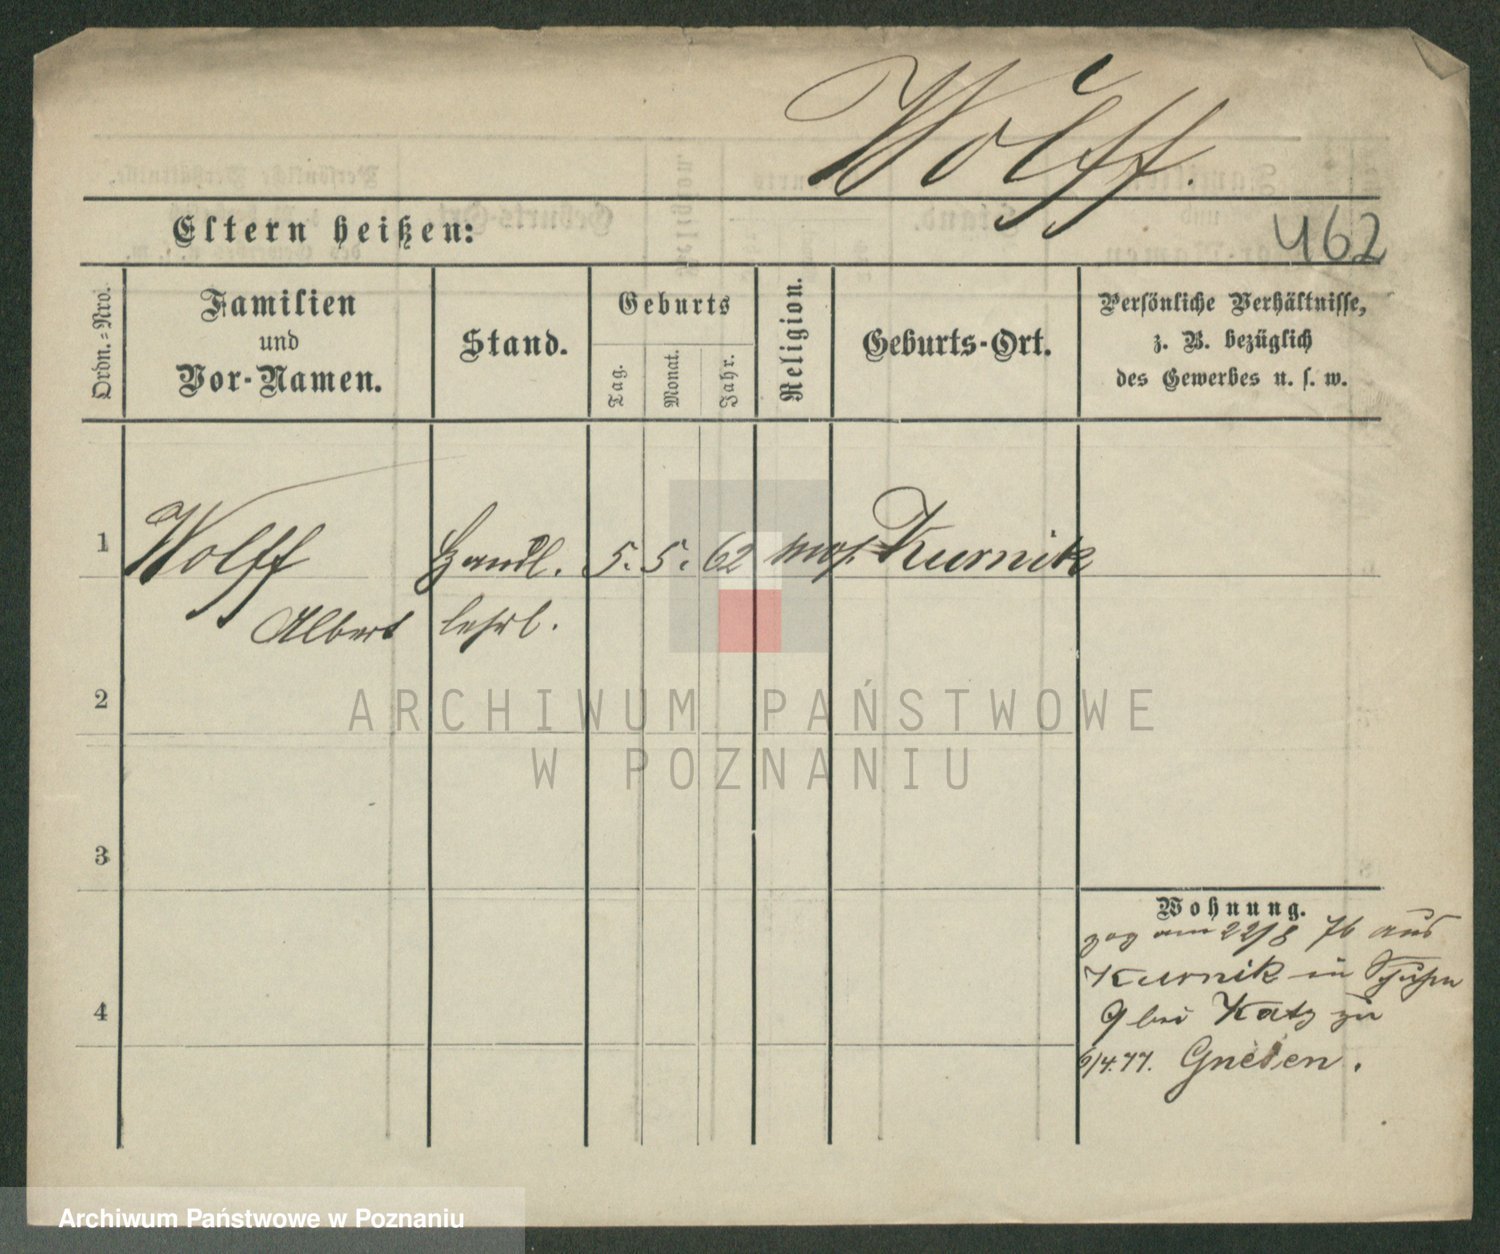 Wolff.
Eltern heißen:
462
Ordn.=Nro.
Familien
und
Vor-Namen.
Stand.
Geburts
Tag.
Monat.
Jahr.
Religion.
Geburts-Ort.
Persönliche Verhältnisse,
z. B. bezüglich
des Gewerbes u. s. w.
1
Wolff Handl. 5. 5. 62 mos. Kurnik
Albert lehrl.
2
3
4
Wohnung.
zog am 22/8 76 aus
Kurnik in
9 bei Katz zu
/4.77. Gnesen.
ARCHIWUM PAŃSTWOWE
W POZNANIU
Archiwum Państwowe w Poznaniu